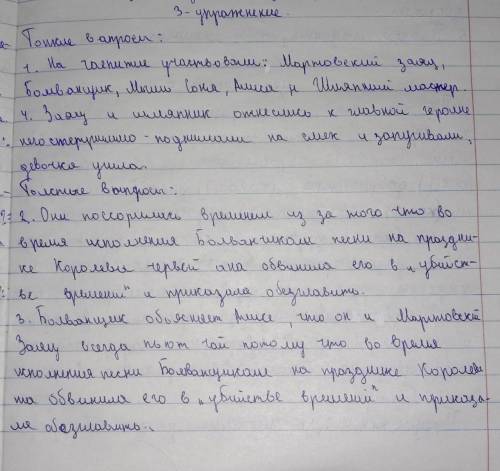 3-упражнение.
Тонкие вапросы:
1. На чаепитие участвовали: Мартовский заяц,
Болванщик, Мышь Соня, Алиса и Шляпный мастер.
4. Заяц и шляпник отнеслись к главной героине
поднимали на смех и запугивали,
девочка ушла.
Толстые вапросы:
2. Они поссорились временем из за того что во
время исполнения Болванщиком песни на праздни-
ке Королевы червей она обвинила его в „убийст-
ве времени" и приказала обезглавить.
3. Болванщик объясняет Алисе, что он и Мартовский
Заяц всегда пьют чай потому что во время
исполнения песни Болванщиком на празднике Королева
та обвинила его в „убийстве времени" и приказа-
ла обезглавить.